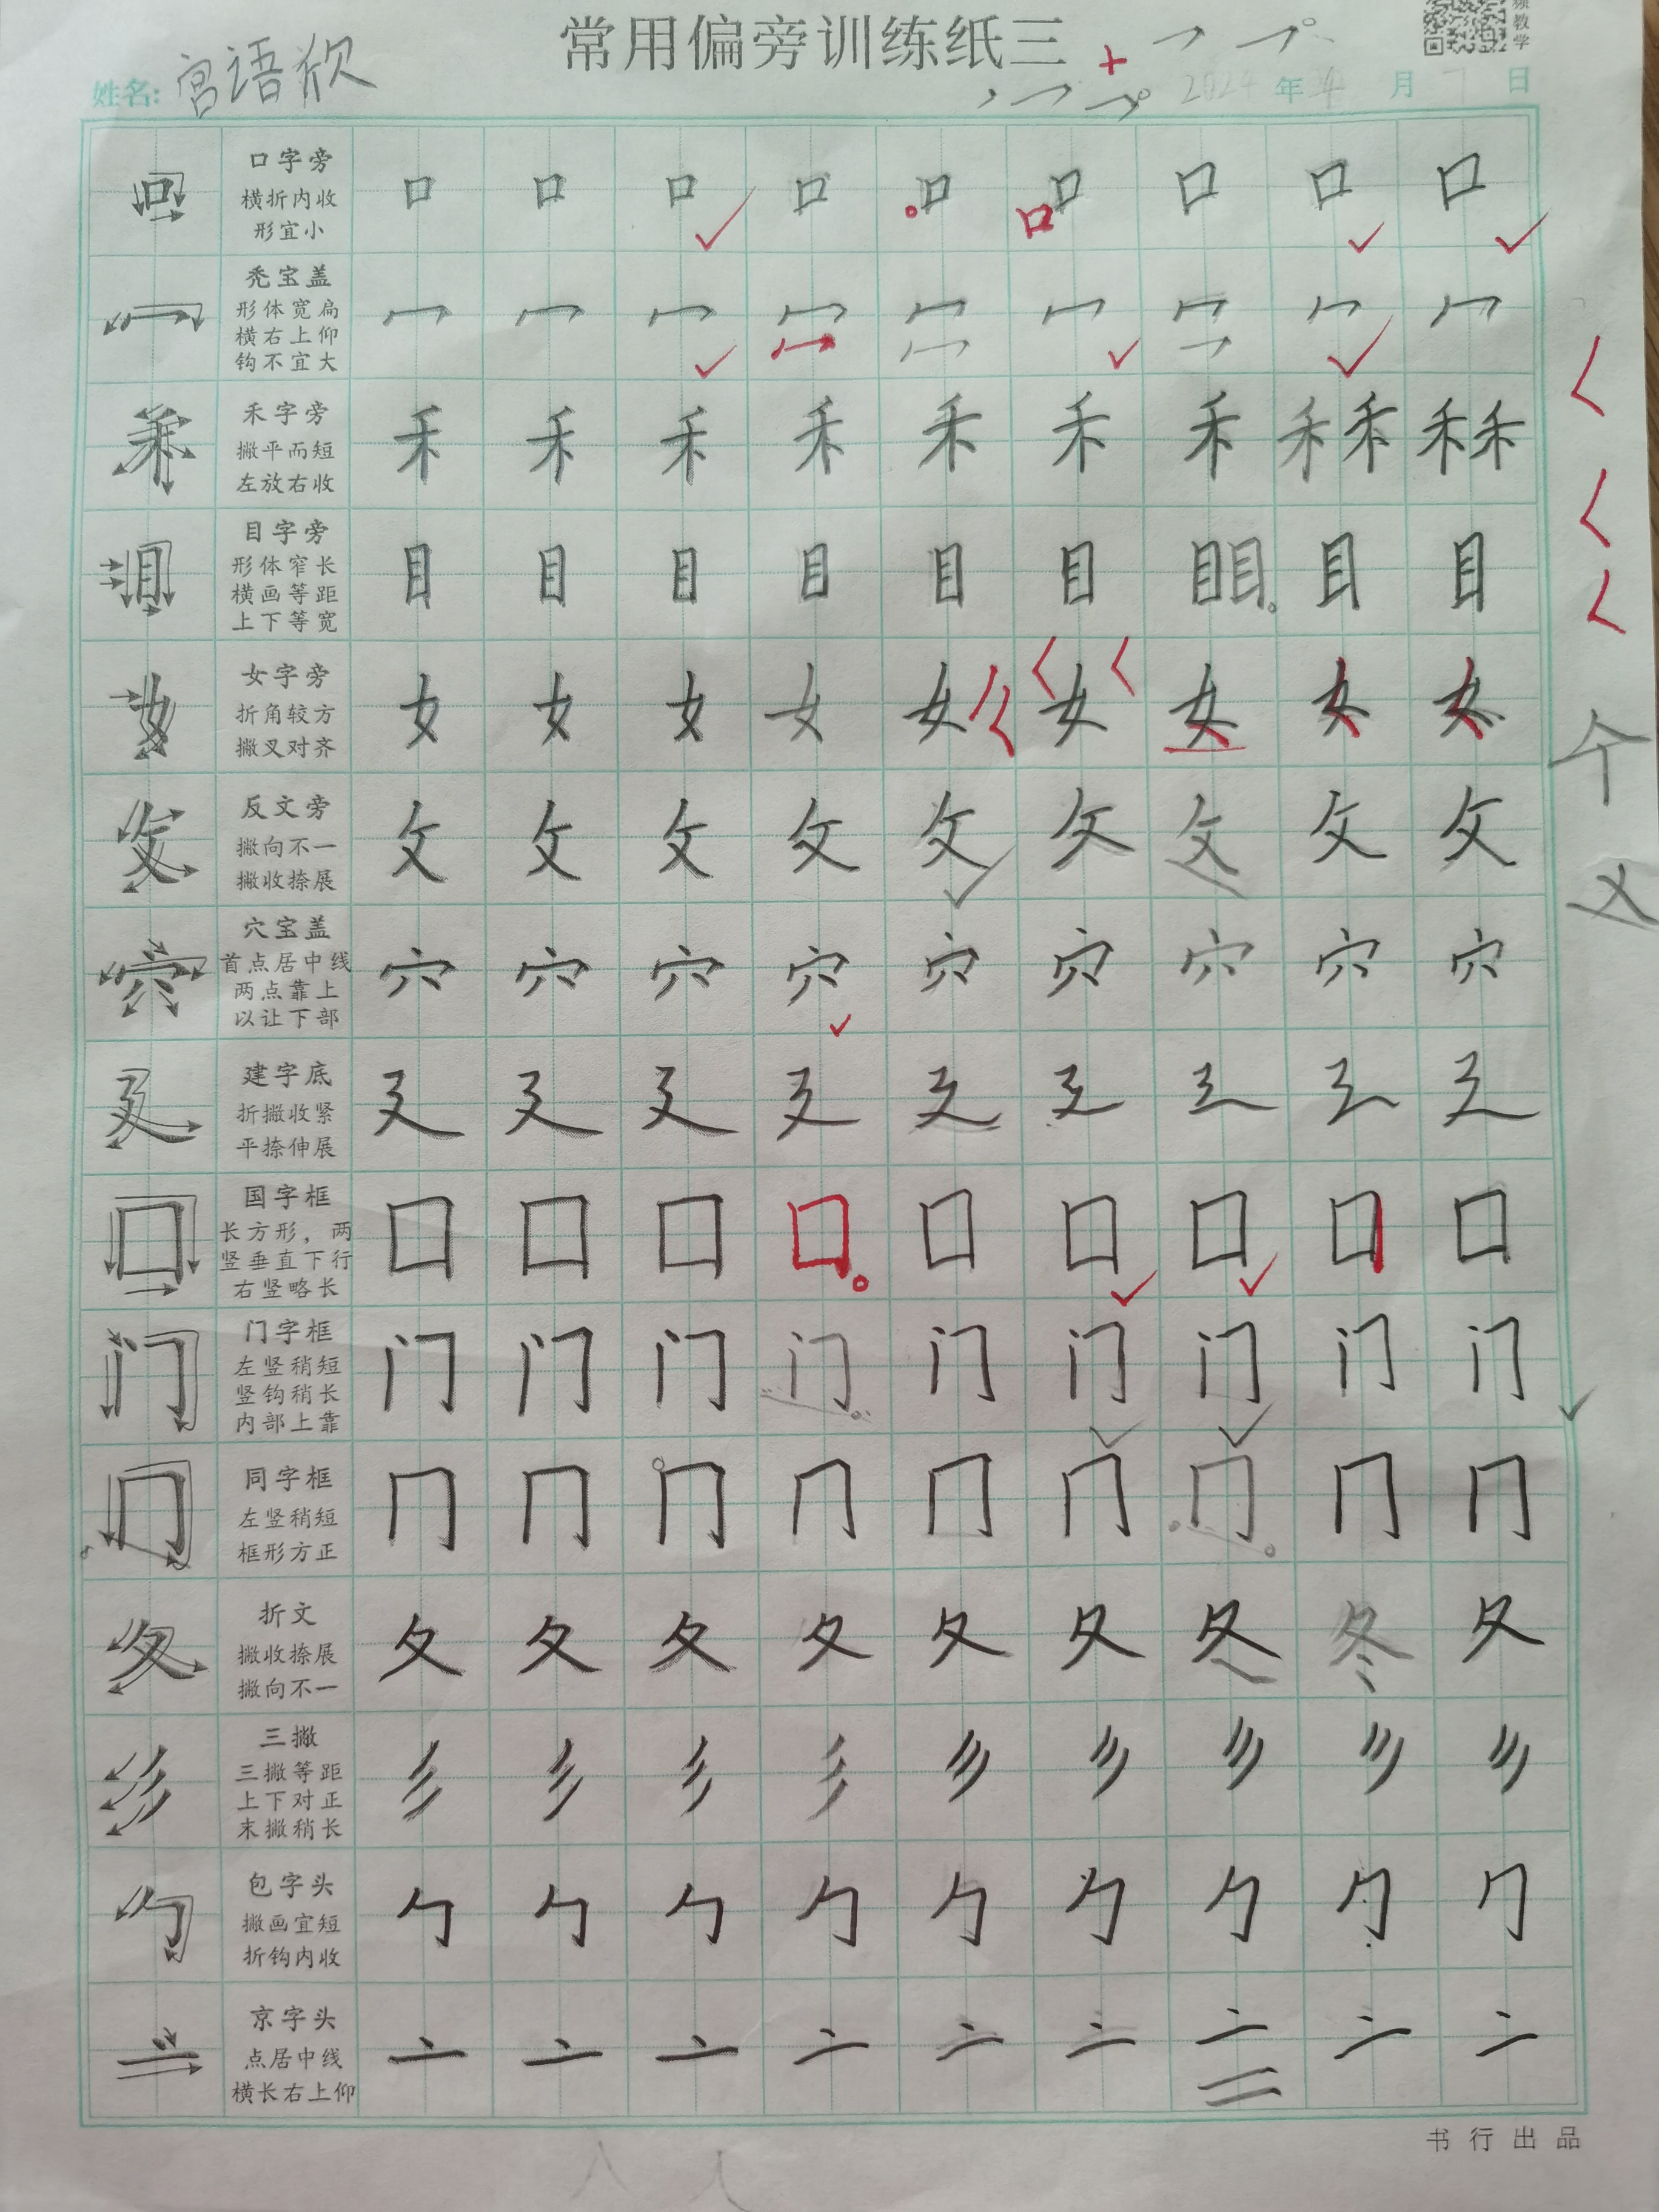 常用偏旁训练纸三
频教学
姓名: 宫语欣 2024 年 月 日
口字旁
横折内收
形宜小
口 口 口 口 口 口 口 口 口 口
秃宝盖
形体宽扁
横右上仰
钩不宜大
冖 冖 冖 冖 冖 冖 冖 冖 冖 冖
禾字旁
撇平而短
左放右收
禾 禾 禾 禾 禾 禾 禾 禾 禾 禾 禾 禾
目字旁
形体窄长
横画等距
上下等宽
目 目 目 目 目 目 目 目 目 目 目
女字旁
折角较方
撇叉对齐
女 女 女 女 女 女 女 女 女 女
反文旁
撇向不一
撇收捺展
攵 攵 攵 攵 攵 攵 攵 攵 攵 攵
穴宝盖
首点居中线
两点靠上
以让下部
穴 穴 穴 穴 穴 穴 穴 穴 穴 穴
建字底
折撇收紧
平捺伸展
廴 廴 廴 廴 廴 廴 廴 廴 廴 廴
国字框
长方形，两
竖垂直下行
右竖略长
囗 囗 囗 囗 囗 囗 囗 囗 囗 囗
门字框
左竖稍短
竖钩稍长
内部上靠
门 门 门 门 门 门 门 门 门 门
同字框
左竖稍短
框形方正
冂 冂 冂 冂 冂 冂 冂 冂 冂 冂
折文
撇收捺展
撇向不一
夂 夂 夂 夂 夂 夂 夂 夂 冬 夂
三撇
三撇等距
上下对正
末撇稍长
彡 彡 彡 彡 彡 彡 彡 彡 彡 彡
包字头
撇画宜短
折钩内收
勹 勹 勹 勹 勹 勹 勹 勹 勹 勹
京字头
点居中线
横长右上仰
亠 亠 亠 亠 亠 亠 亠 亠 亠 亠
书行出品